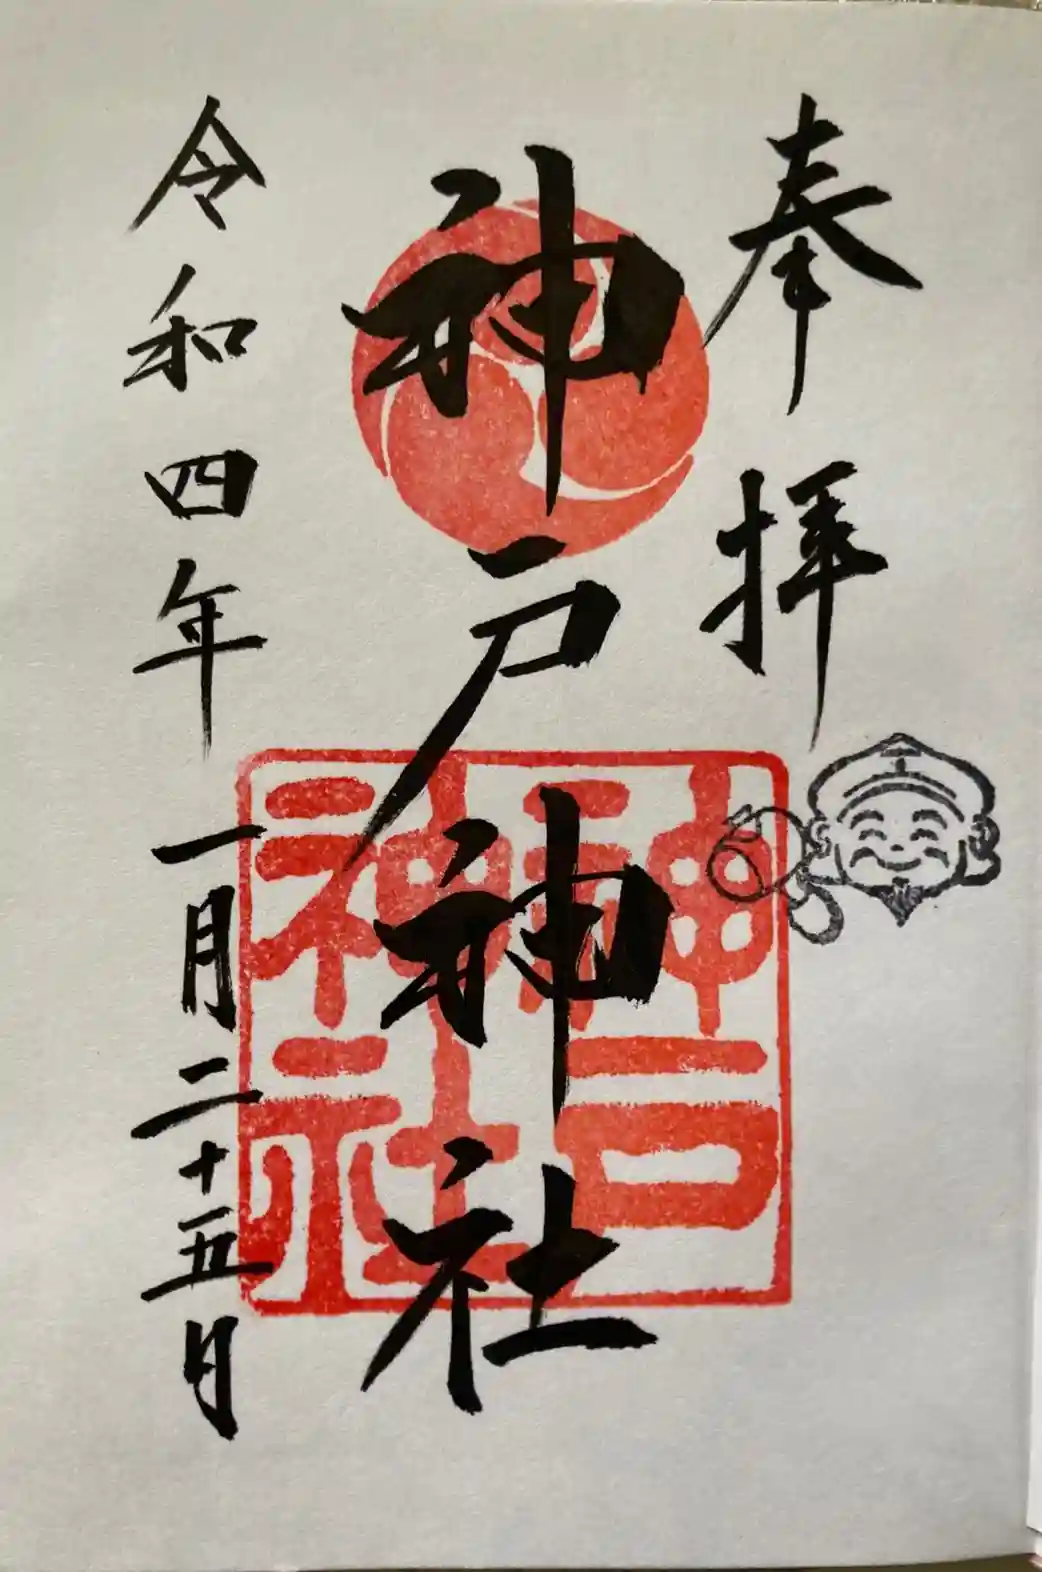 奉拝
神戸神社
神戸神社
令和四年一月二十五日